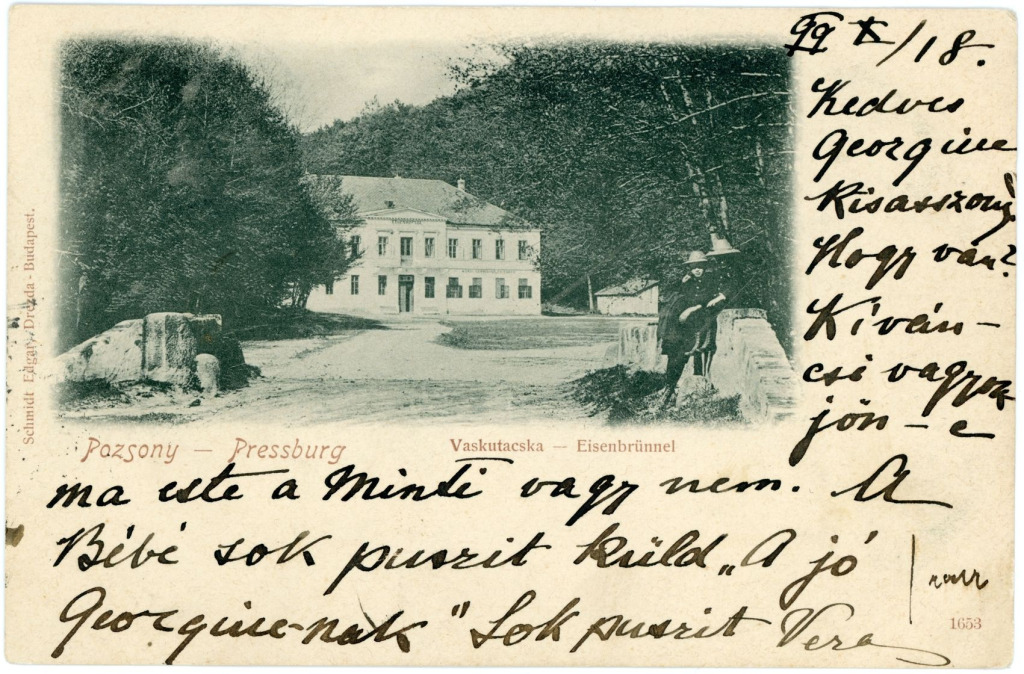 99 X/18.
Kedves
Georgine
Kisasszony
Hogy van?
Kíván-
csi vagyok
jön-e
Schmidt Edgar, Drezda - Budapest.
Pozsony — Pressburg
Vaskutacska — Eisenbrünnel
ma este a Minti vagy nem. A
Bébé sok puszit küld „A jó
Georgine-nak" Sok puszit Vera
1653